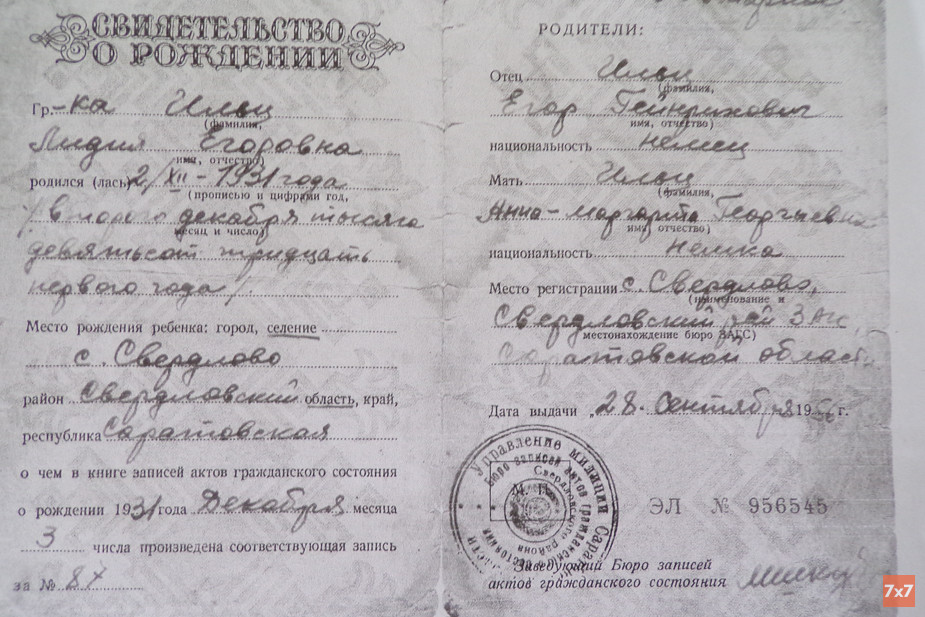 СВИДЕТЕЛЬСТВО
О РОЖДЕНИИ
Гр.-ка Ильц
(фамилия,
Лидия Егоровна
имя, отчество)
родился (лась) 2/XII - 1931 года
(прописью и цифрами год,
/второго декабря тысяча
месяц и число)
девятьсот тридцать
первого года/
Место рождения ребенка: город, селение
с. Свердлово
район Свердловский область, край,
республика Саратовская
о чем в книге записей актов гражданского состояния
о рождении 1931 года Декабря месяца
3 числа произведена соответствующая запись
за № 87
РОДИТЕЛИ:
Отец Ильц
(фамилия,
Егор Гейнрихович
имя, отчество)
национальность немец
Мать Ильц
(фамилия,
Анна-Маргарита Георгиевна
имя, отчество)
национальность немка
Место регистрации с. Свердлово,
(наименование и
Свердловский рай ЗАГС,
местонахождение бюро ЗАГС)
Саратовской области
Дата выдачи 28. Сентября 1956 г.
Управление милиции
Бюро записей актов гражданского состояния
Свердловского района
ЭЛ № 956545
Заведующий Бюро записей
актов гражданского состояния
7x7